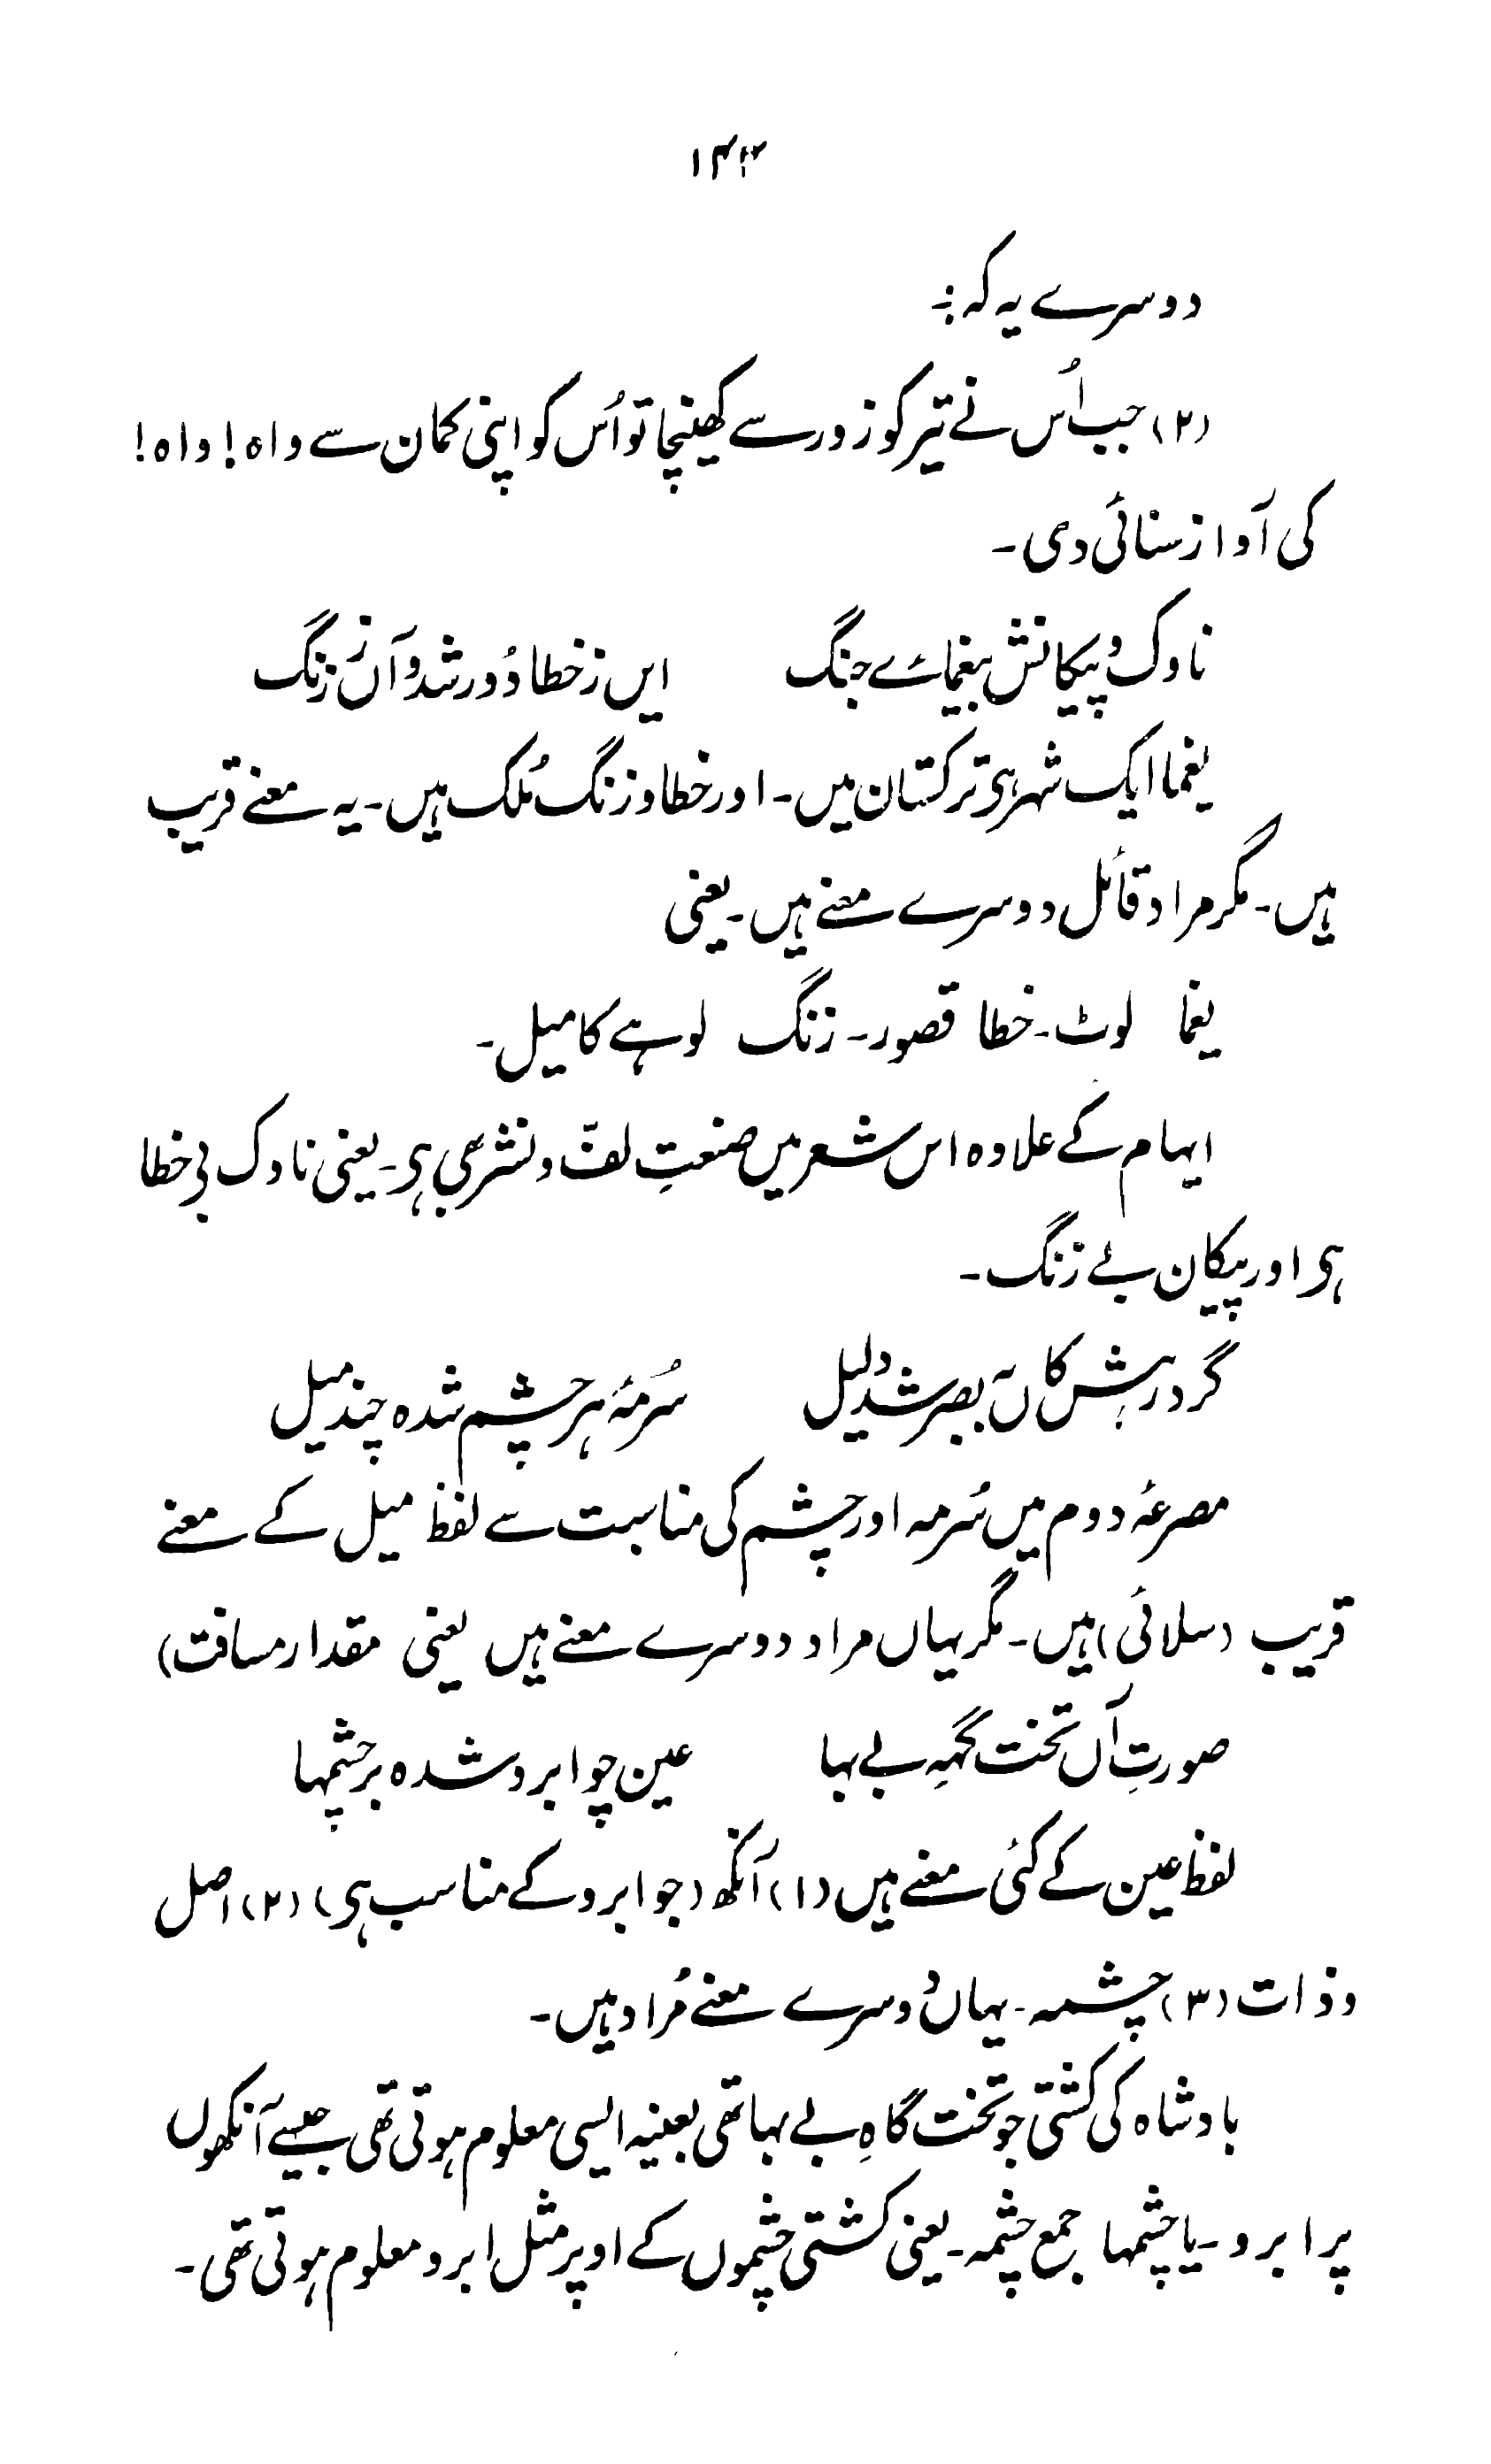 ۱۴۲
دوسرے یہ کہ :-
(۲) جب اُس نے تیر کو زور سے کھینچا تو اُس کو اپنی کمان سے واہ! واہ!
کی آواز سنائی دی۔
ناوک و پیکانش بیغمائے جنگ ایں ز خطا دُور شد و آں ز زنگ
یغما ایک شہر ہی ترکستان میں۔ اور خطا و زنگ مُلک ہیں۔ یہ معنے قریب
ہیں۔ مگر مراد قائل دوسرے معنے ہیں۔ یعنی
یغما لوٹ۔ خطا قصور۔ زنگ لوہے کا میل۔
ایہام کے علاوہ اس شعر میں صنعتِ لفّ و نشر بھی ہی۔ یعنی ناوک بی خطا
ہی اور پیکان بے زنگ۔
گرد رہش کاں بہ بصر شد دلیل سُرمۂ ہر چشم شدہ چند میل
مصرعۂ دوم میں سُرمہ اور چشم کی مناسبت سے لفظ میل کے معنے
قریب (سلائی) ہیں۔ مگر یہاں مراد دوسرے معنے ہیں یعنی مقدار مسافت)
صورتِ آں تخت گہِ بے بہا عین چو ابرو شدہ بر چشمہا
لفظ عین کے کئی معنے ہیں (۱) آنکھ (جو ابرو کے مناسب ہی) (۲) اصل
و ذات (۳) چشمہ۔ یہاں دوسرے معنے مُراد ہیں۔
بادشاہ کی کشتی جو تخت گاہِ بے بہا تھی بعینہ ایسی معلوم ہوتی تھی جیسے آنکھوں
پر ابرو۔ یا چشمہا جمع چشمہ۔ یعنی کشتی چشموں کے اوپر مثل ابرو معلوم ہوتی تھی۔